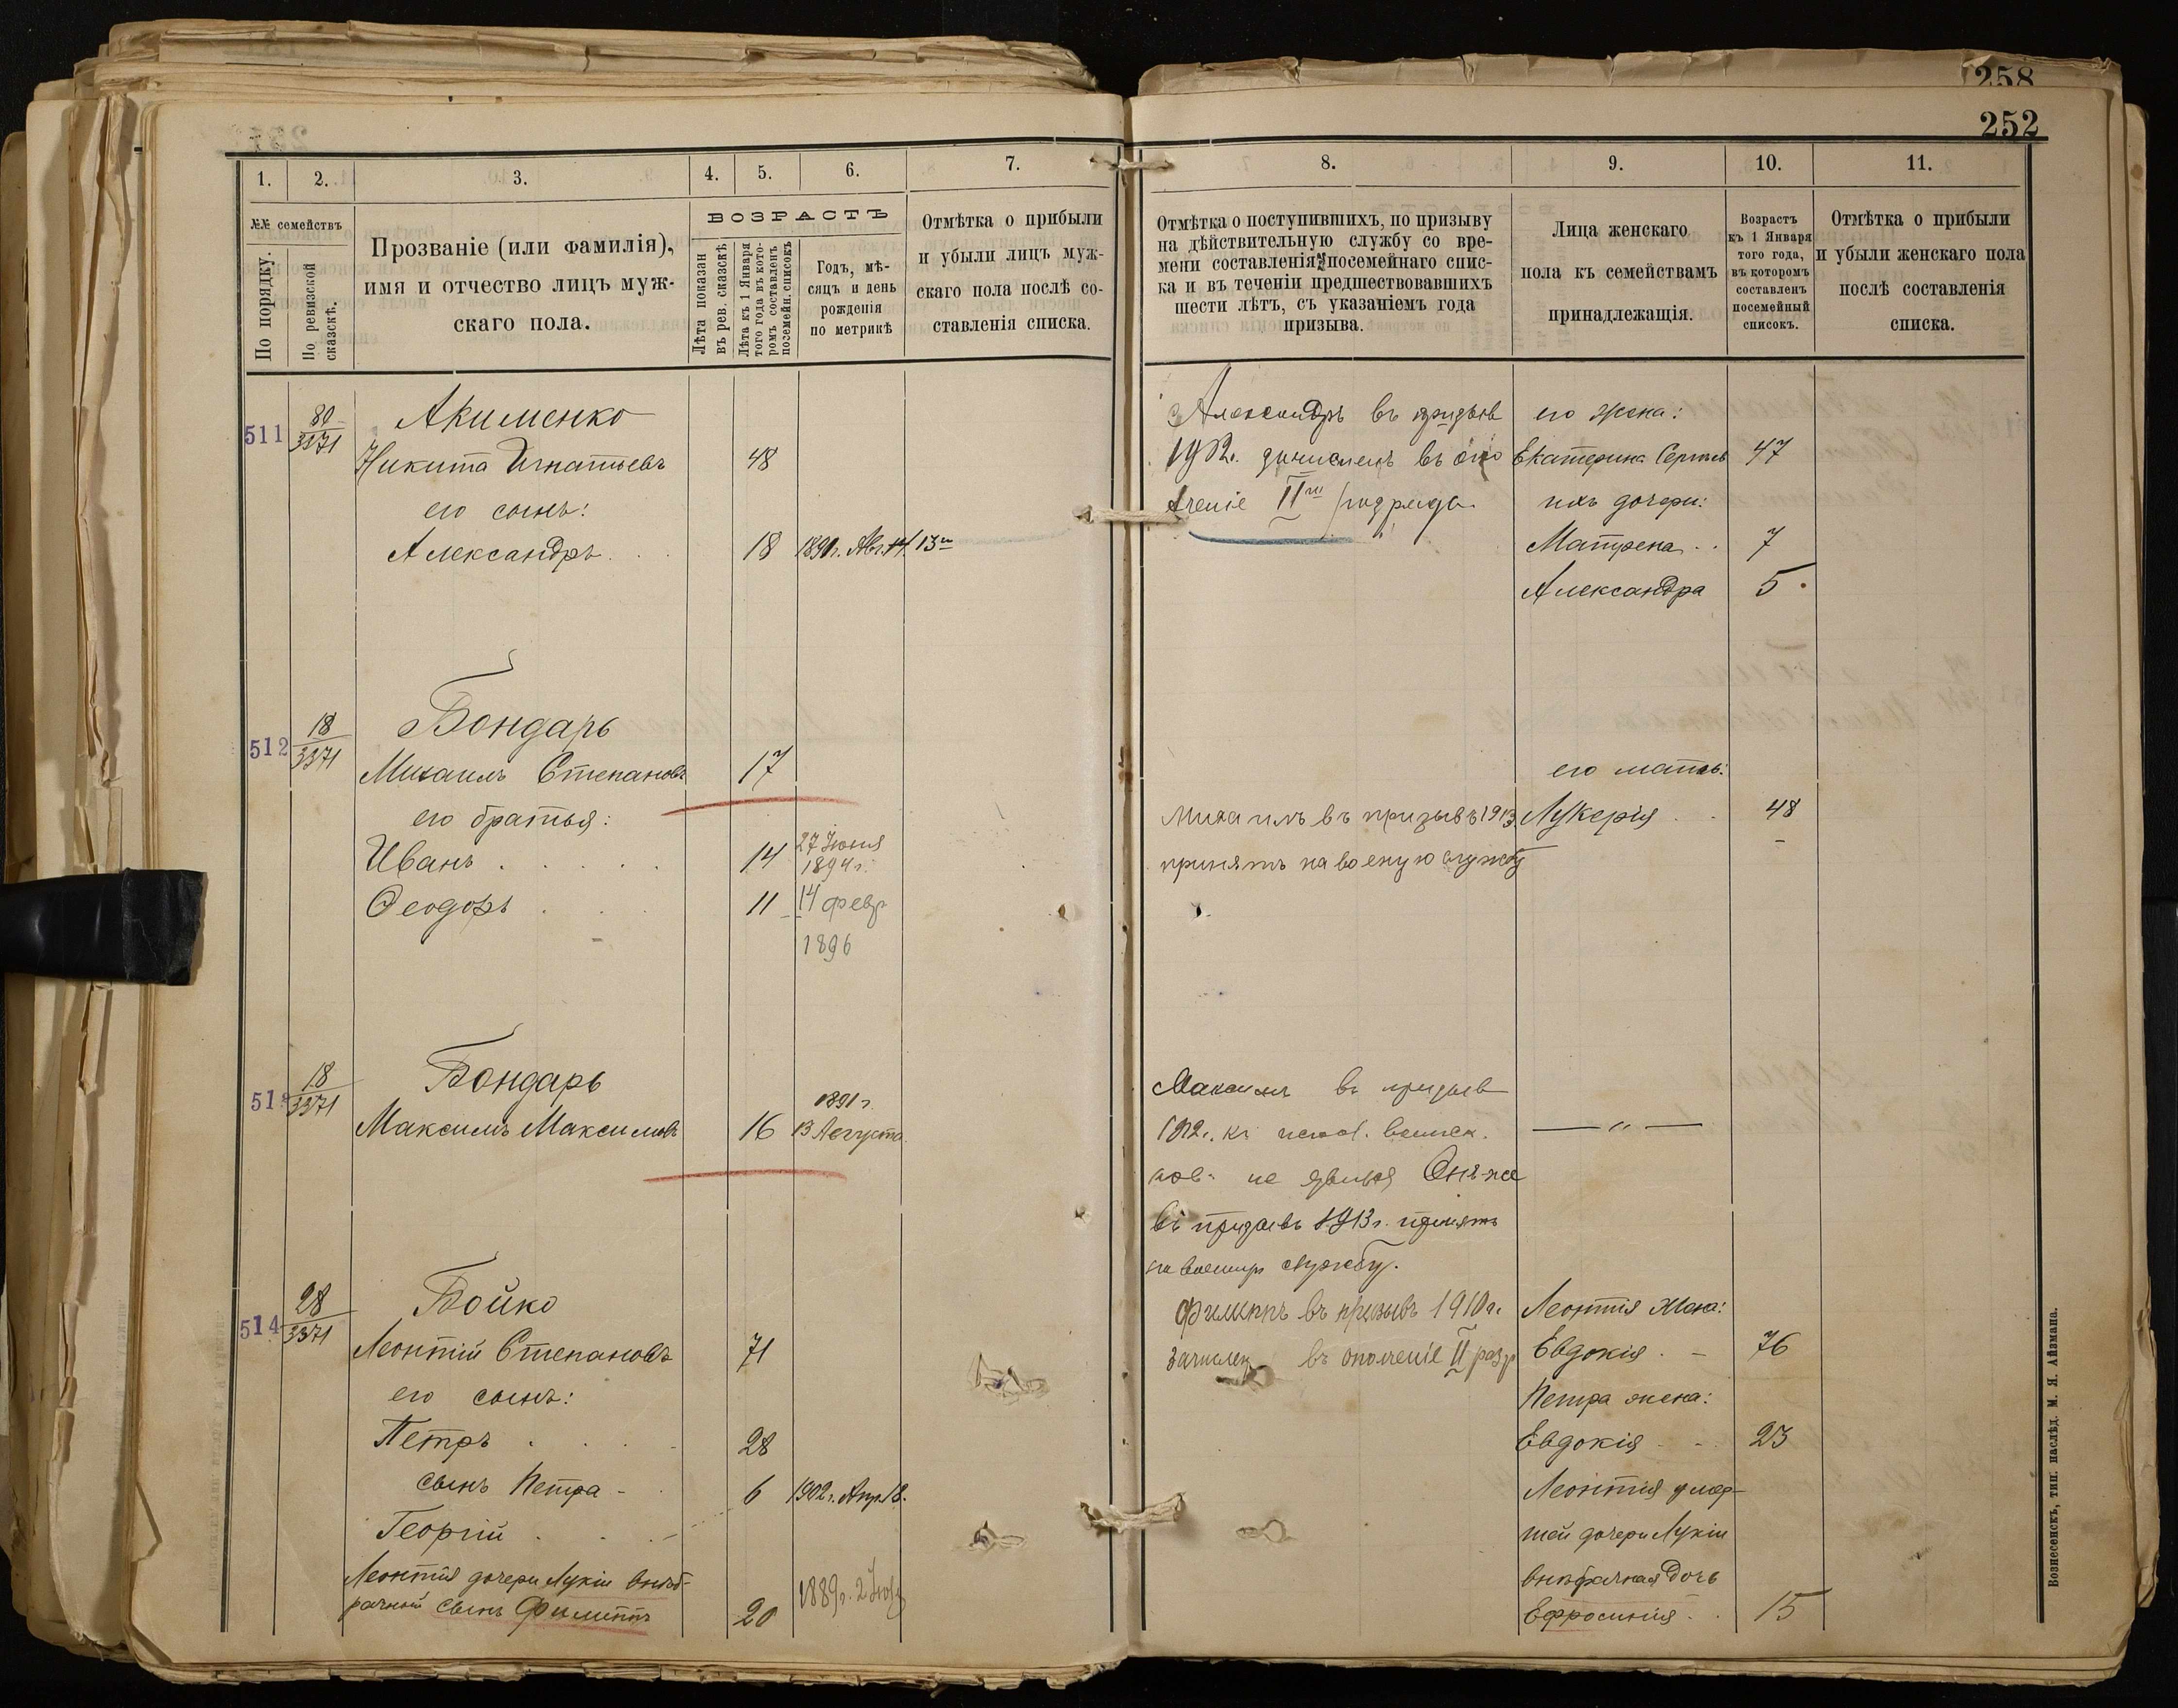 258
252
1. 2. 3. 4. 5. 6. 7.
№№ семействъ
По порядку.
По ревизской сказскѣ.
Прозваніе (или фамилія),
имя и отчество лицъ муж-
скаго пола.
ВОЗРАСТЪ
Лѣта показан
въ рев. сказскѣ
Лѣта къ 1 Января
того года въ кото-
ромъ составленъ
посемейн. списокъ
Годъ, мѣ-
сяцъ и день
рожденія
по метрикѣ
Отмѣтка о прибыли
и убыли лицъ муж-
скаго пола послѣ со-
ставленія списка.
511 80/3371 Акименко
Никита Игнатьевъ 48
его сынъ:
Александръ 18 1891г. Авг. 13
512 18/3371 Бондарь
Михаилъ Степановъ 17
его братья:
Иванъ 14 27 Іюня 1894г.
Ѳеодоръ 11 14 февр 1896
51 18/3371 Бондарь
Максимъ Максимовъ 16 1891г. 13 Августа
514 28/3371 Бойко
Леонтій Степановъ 71
его сынъ:
Петръ 28
сынъ Петра
Георгій 6 1902г. Апр. 18.
Леонтія дочери Лукіи внѣб-
рачный сынъ Филиппъ 20 1889г. 2
8. 9. 10. 11.
Отмѣтка о поступившихъ, по призыву
на дѣйствительную службу со вре-
мени составленія посемейнаго спис-
ка и въ теченіи предшествовавшихъ
шести лѣтъ, съ указаніемъ года
призыва.
Лица женскаго
пола къ семействамъ
принадлежащія.
Возрастъ
къ 1 Января
того года,
въ которомъ
составленъ
посемейный
списокъ.
Отмѣтка о прибыли
и убыли женскаго пола
послѣ составленія
списка.
Александръ въ призывъ
1912г. зачисленъ въ опо
лченіе II разряда.
его жена:
Екатерина Сергѣев 47
ихъ дочери:
Матрена 7
Александра 5
Михаилъ въ призывъ 1913
принятъ на военую службу
его мать:
Лукерія 48
Максимъ въ призывъ
1912г. къ
не явился Онъ-же
въ призывъ 1913г. принятъ
на военную службу.
— „ —
Филиппъ въ призывъ 1910г.
зачислен въ ополченіе II разр
Леонтія жена:
Евдокія 76
Петра жена:
Евдокія 23
Леонтія умер-
шей дочери Лукіи
внѣбрачная дочь
Ефросинія 15
Вознесенскъ, тип. наслѣд. М. Я. Айзмана.